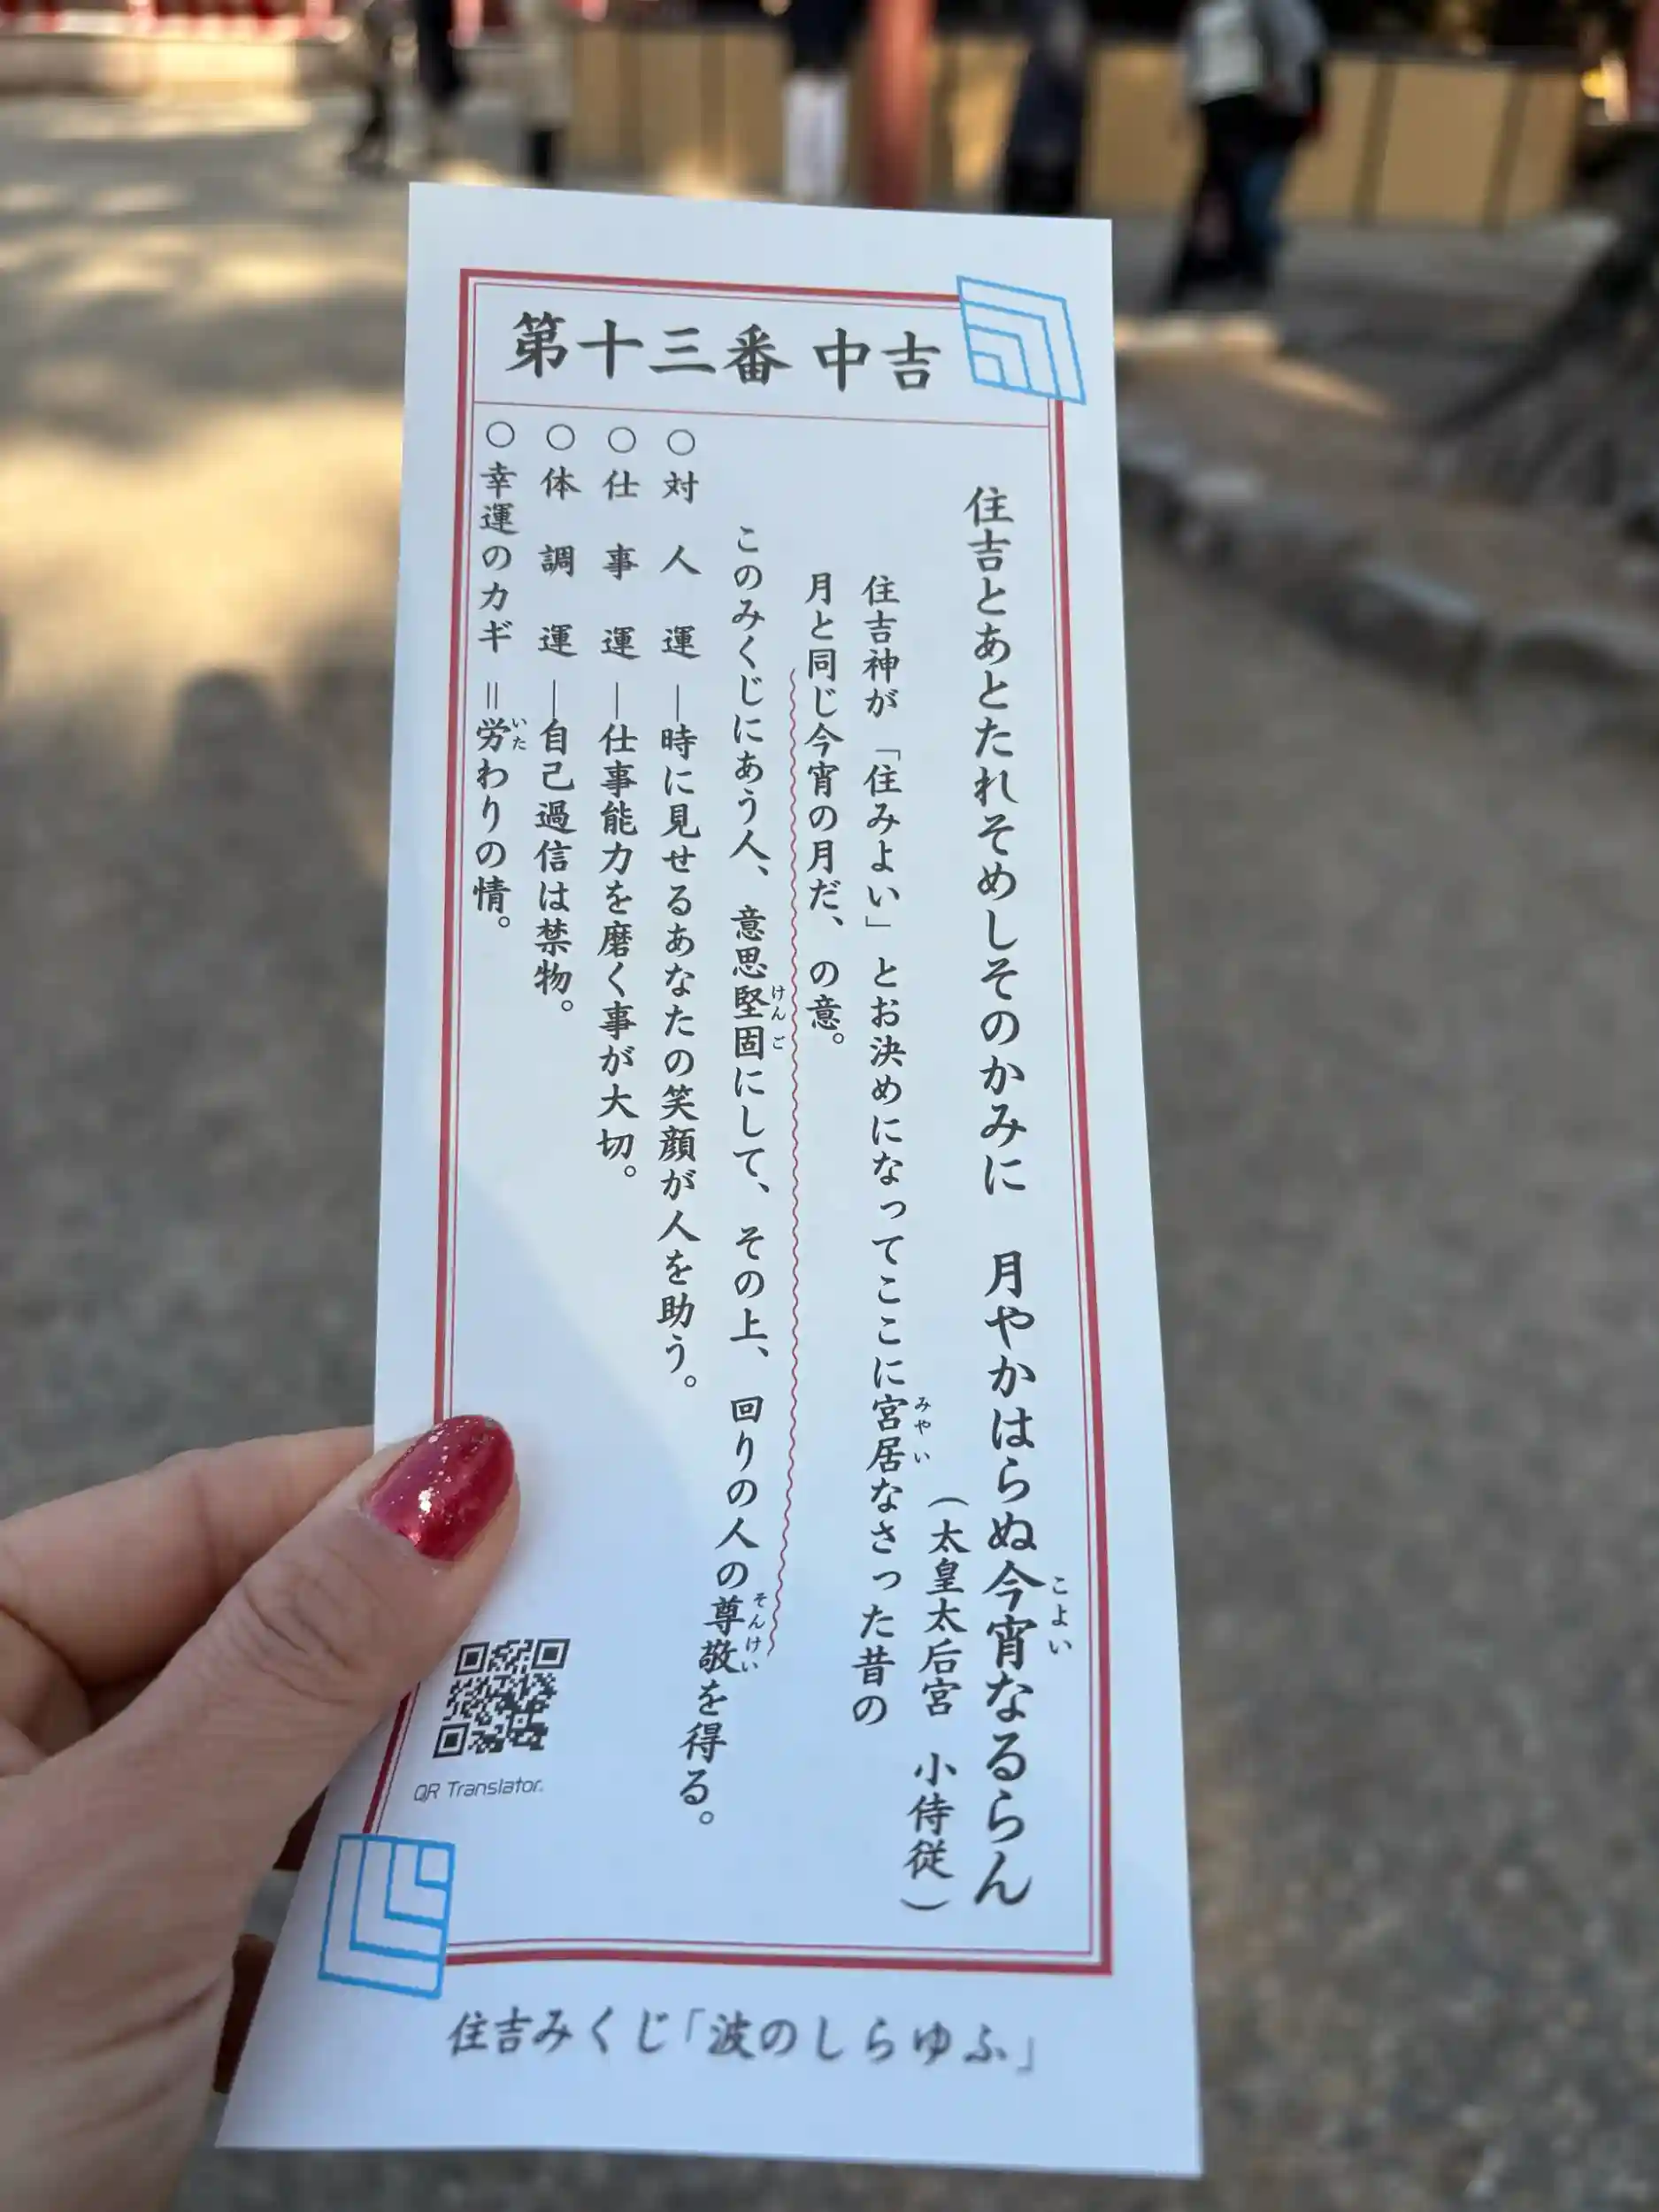 第十三番 中吉
住吉とあとたれそめしそのかみに　月やかはらぬ今宵なるらん
こよい
（太皇太后宮　小侍従）
住吉神が「住みよい」とお決めになってここに宮居なさった昔の
みやい
月と同じ今宵の月だ、の意。
このみくじにあう人、意思堅固にして、その上、回りの人の尊敬を得る。
けんご
そんけい
○対人運―時に見せるあなたの笑顔が人を助う。
○仕事運―仕事能力を磨く事が大切。
○体調運―自己過信は禁物。
○幸運のカギ＝労わりの情。
いた
QR Translator.
住吉みくじ「波のしらゆふ」